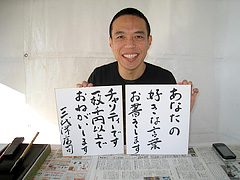 あなたの
好きな言葉
お書きします
チャリティです
一枚千円以上で
おねがいします